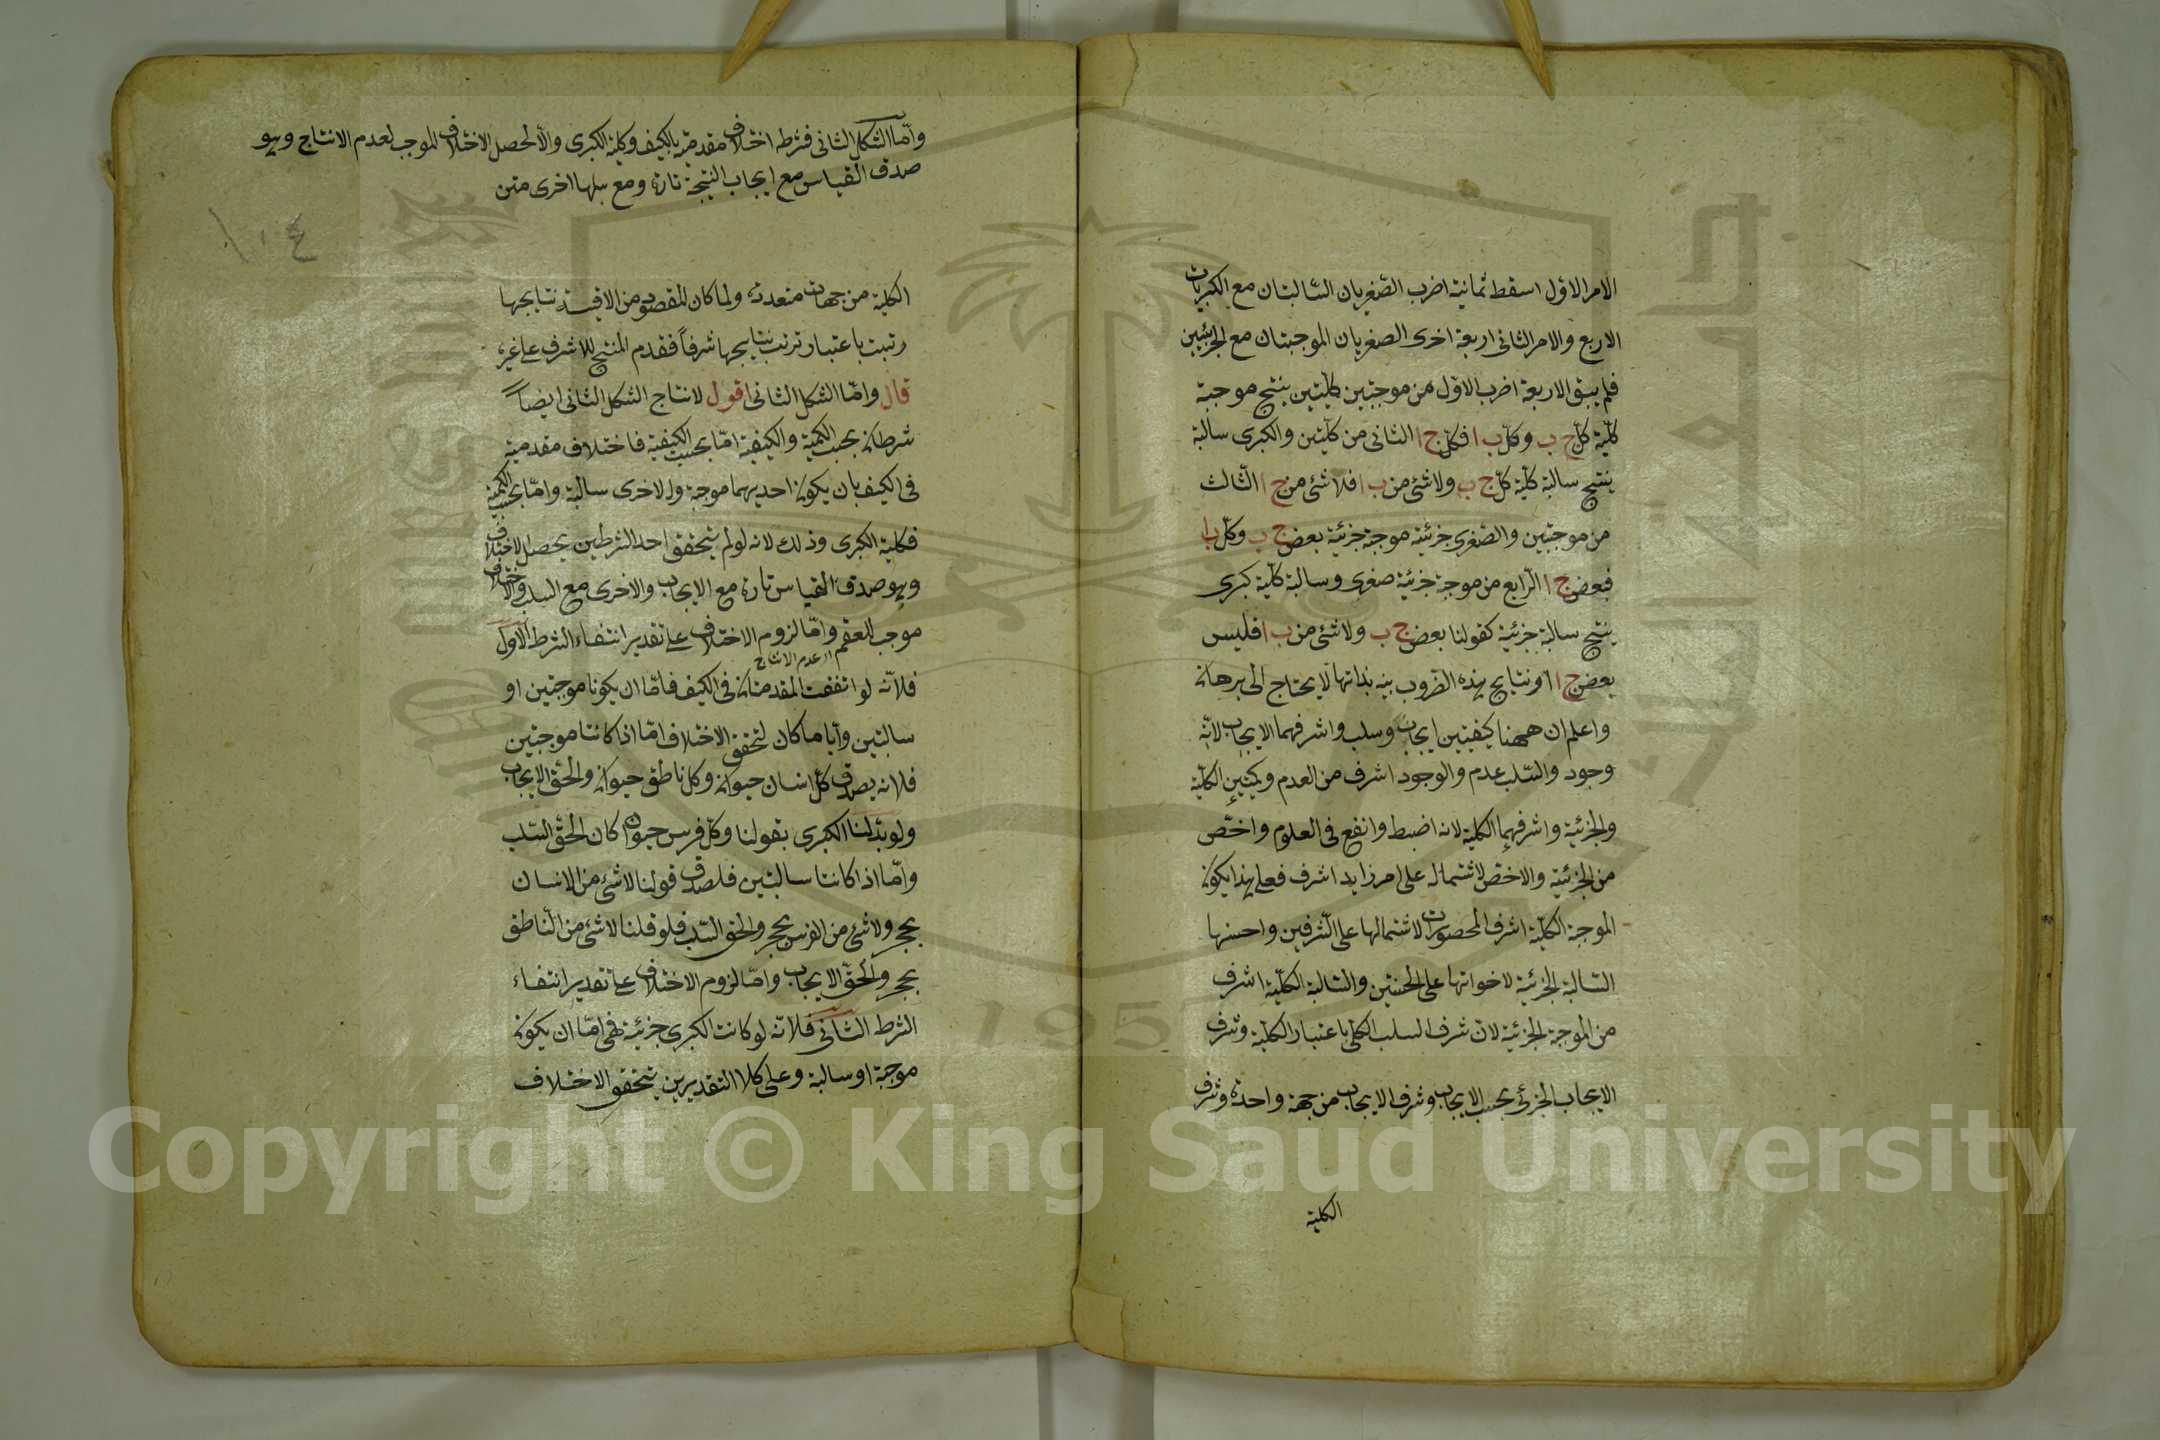 الامر الاول اسقط ثمانية اضرب الصغريان السالبتان مع الكبريات
الاربع والامر الثانى اربعة اخرى الصغريان الموجبتان مع الجزئيتين
فلم يبق الا اربعة اضرب الاول من موجبتين كليتين ينتج موجبة
كلية كل ج ب وكل ب ا فكل ج ا الثانى من كليتين والكبرى سالبة
ينتج سالبة كلية كل ج ب ولا شئ من ب ا فلا شئ من ج ا الثالث
من موجبتين والصغرى جزئية موجبة جزئية بعض ج ب وكل ب ا
فبعض ج ا الرابع من موجبة جزئية صغرى وسالبة كلية كبرى
ينتج سالبة جزئية كقولنا بعض ج ب ولا شئ من ب ا فليس
بعض ج ا ونتايج هذه الضروب بينة بذاتها لا يحتاج الى برهان
واعلم ان ههنا كيفيتين ايجاب وسلب واشرفهما الايجاب لانه
وجود والسلب عدم والوجود اشرف من العدم وكميتين الكلية
والجزئية واشرفهما الكلية لانه اضبط وانفع فى العلوم واخص
من الجزئية والاخص لاشتماله على امر زايد اشرف فعلى هذا يكون
الموجبة الكلية اشرف المحصورات لاشتمالها على الشرفين واحسنها
السالبة الجزئية لاحوائها على الخستين والسالبة الكلية اشرف
من الموجبة الجزئية لان شرف السلب الكلى باعتبار الكلية وشرف
الايجاب الجزئى بحسب الايجاب وشرف الايجاب من جهة واحدة وشرف
الكلية
واما الشكل الثانى فشرطه اختلاف مقدمتيه بالكيف وكلية الكبرى والا لحصل الاختلاف الموجب لعدم الانتاج وهو
صدق القياس مع ايجاب النتيجة تارة ومع سلبها اخرى متن
١٠٤
الكلية من جهات متعددة ولما كان المقصود من الاقيسة نتايجها
رتبت باعتبار ترتب نتايجها شرفاً فقدم المنتج للاشرف على غيره
قال واما الشكل الثانى اقول لانتاج الشكل الثانى ايضاً
شرطان بحسب الكمية والكيفية اما بحسب الكيفية فاختلاف مقدمتيه
فى الكيف بان يكون احديهما موجبة والاخرى سالبة واما بحسب الكمية
فكلية الكبرى وذلك لانه لو لم يتحقق احد الشرطين يحصل الاختلاف
وهو صدق القياس تارة مع الايجاب والاخرى مع السلب والاختلاف
موجب للعقم واما لزوم الاختلاف على تقدير انتفاء الشرط الاول
اى عدم الانتاج
فلانه لو اتفقت المقدمتان فى الكيف فاما ان يكونا موجبتين او
سالبتين وايا ما كان لتحقق الاختلاف اما اذا كانتا موجبتين
فلانه يصدق كل انسان حيوان وكل ناطق حيوان والحق الايجاب
ولو بدلنا الكبرى بقولنا وكل فرس حيوان كان الحق السلب
واما اذا كانتا سالبتين فلصدق قولنا لا شئ من الانسان
بحجر ولا شئ من الفرس بحجر والحق السلب فلو قلنا لا شئ من الناطق
بحجر والحق الايجاب واما لزوم الاختلاف على تقدير انتفاء
الشرط الثانى فلانه لو كانت الكبرى جزئية فهى اما ان يكون
موجبة او سالبة وعلى كلا التقديرين يتحقق الاختلاف
Copyright © King Saud University
195